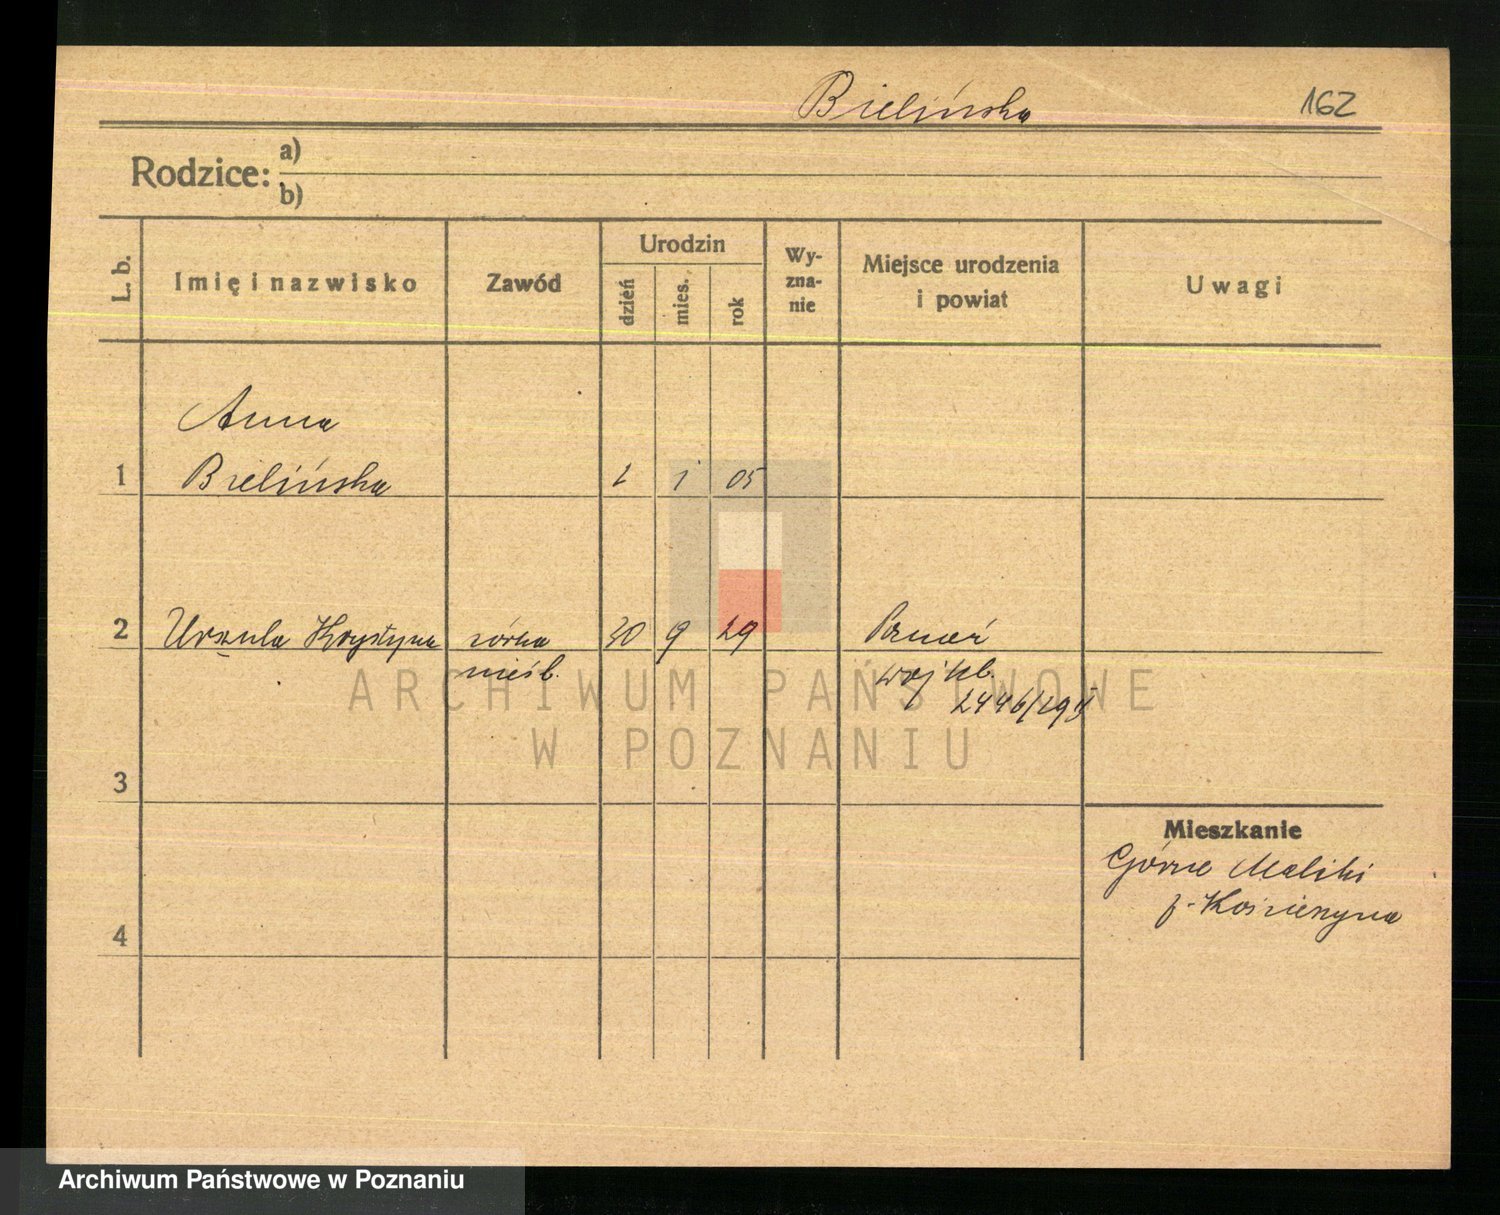 Bielińska
162
Rodzice: a)
b)
L. b.
Imię i nazwisko
Zawód
Urodzin
dzień
mies.
rok
Wy-
zna-
nie
Miejsce urodzenia
i powiat
Uwagi
Anna
1 Bielińska 2 1 05
2 Urszula Krystyna córka 30 9 29 Poznań
nieśb.
2446/29
3
4
Mieszkanie
Górne Maliki
p. Kościerzyna
ARCHIWUM PAŃSTWOWE
W POZNANIU
Archiwum Państwowe w Poznaniu